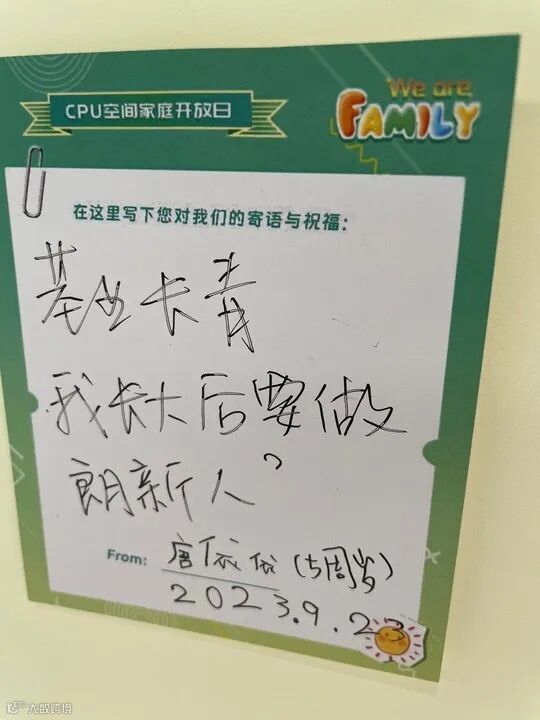 We are
FAMILY
CPU空间家庭开放日
在这里写下您对我们的寄语与祝福：
基业长青
我长大后要做
朗新人
From: 唐依依（5周岁）
2023.9.23
大数跨境